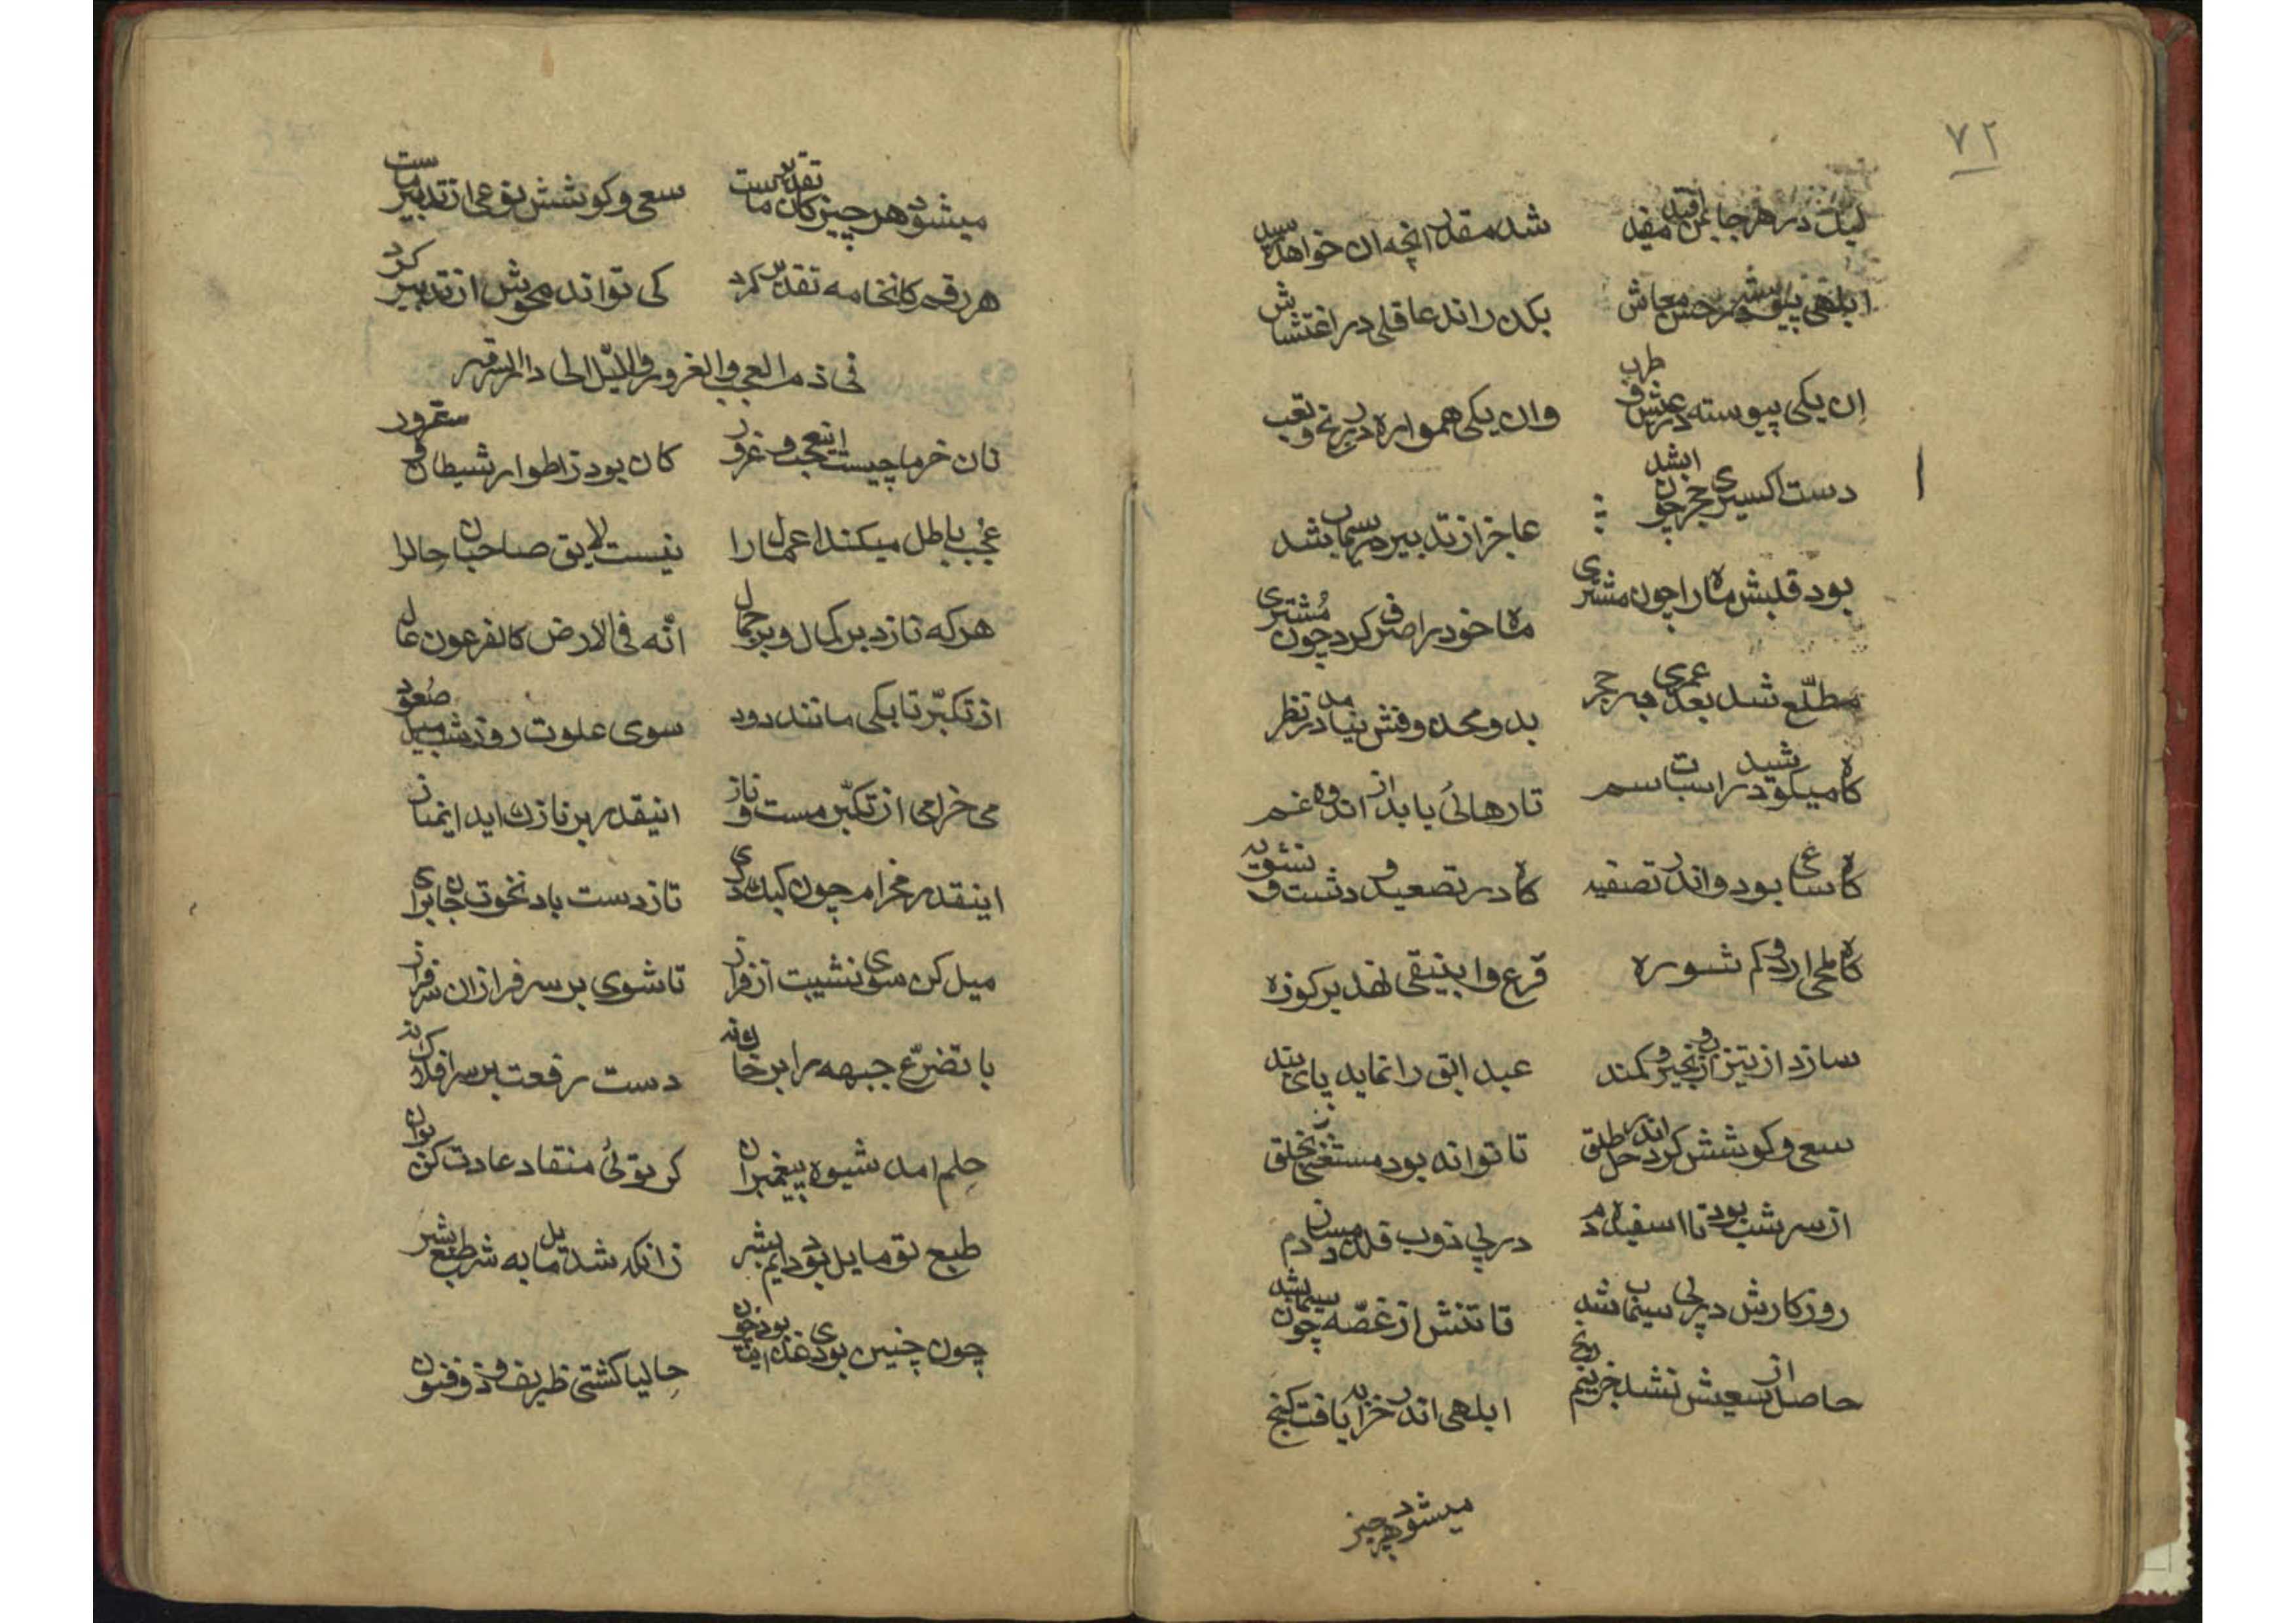 ٧٢
لیک در هر جا بمن مفید افتد شد مقدر انچه ان خواهد رسید
ابلهی پیوسته در حسن معاش بکدراند عاقلی در اغتشاش
ان یکی پیوسته در عیش و طرب وان یکی همواره در رنج و تعب
دست اکسیری حجر چون ابشد عاجز از تدبیر در سیماب شد
بود قلبش ماه را چون مشتری ماه خود را صرف کرد چون مشتری
مطلّع شد بعد عمری بر حجر بد و محده وفش نیامد در نظر
کاه میکوشید در اسباب سم تا رهائی یابد از اندوه غم
کاه ساعی بود اندر تصفیه کاه در تصعید و دشت و تشویه
کاه ملحی ارد و کم شوره قرع و انبیقی نهد بر کوزه
سازد از تیزاب و زنجیر و کمند عبد ابق را نماید پای بند
سعی و کوشش کرد اندر حل طلق تا تواند بود مستغنی ز خلق
از سر شب بود تا اسفیده دم در پی ذوب قلع میزد دم
روزکارش در پی سیماب شد تا تنش از غصّه چون سیماب شد
حاصل از سعیش نشد جز نیم رنج ابلهی اندر خرابه یافت کنج
میشود هر چیز
میشود هر چیز کان تقدیر ماست سعی و کوشش نوعی از تدبیر ماست
هر رقم کان خامه تقدیر کرد کی تواند محوش از تدبیر کرد
فی ذم العجب والغرور والمیل الی دار السرور
نان خرما چیست این عجب و غرور کان بود ز اطوار شیطان و غرور
عُجب باطل میکند اعمال را نیست لایق صاحبان حال را
هر که نازد بر کمال و بر جمال انّه فی الارض کالفرعون عال
از تکبّر تا بکی مانند دود سوی علوت روز شب میل صُعود
می خرامی از تکبّر مست و ناز انیقدر بر نازکت اید ایمناز
اینقدر مخرام چون کبک دری تا ز دست باد نخوت جان بری
میل کن سوی نشیبت از فراز تا شوی بر سرفرازان سرفراز
با تضرّع جبهه را بر خاک نه دست رفعت بر سر افلاک نه
حِلم امد شیوه پیغمبران کر توئی منقاد عادت کن بران
طبع تو مایل بود دایم بشر زانکه شد مایل به شر طبع بشر
چون چنین بودی غذایت بود خون حالیا کشتی ظریف و ذوفنون